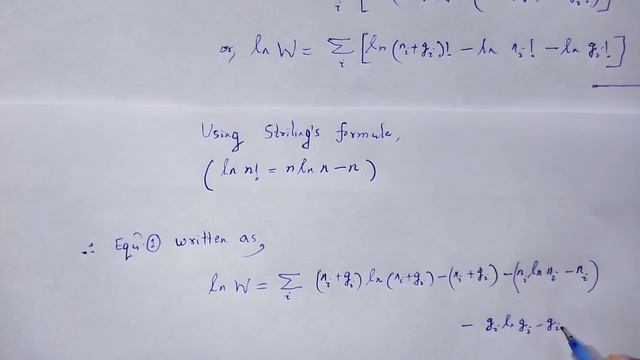 or, ln W = Σ_i [ln (n_i+g_i)! − ln n_i! − ln g_i!]
Using Striling's formula,
(ln n! = n ln n − n)
∴ Equⁿ ① written as,
ln W = Σ_i (n_i+g_i) ln (n_i+g_i) − (n_i+g_i) − (n_i ln n_i − n_i)
− g_i ln g_i − g_i